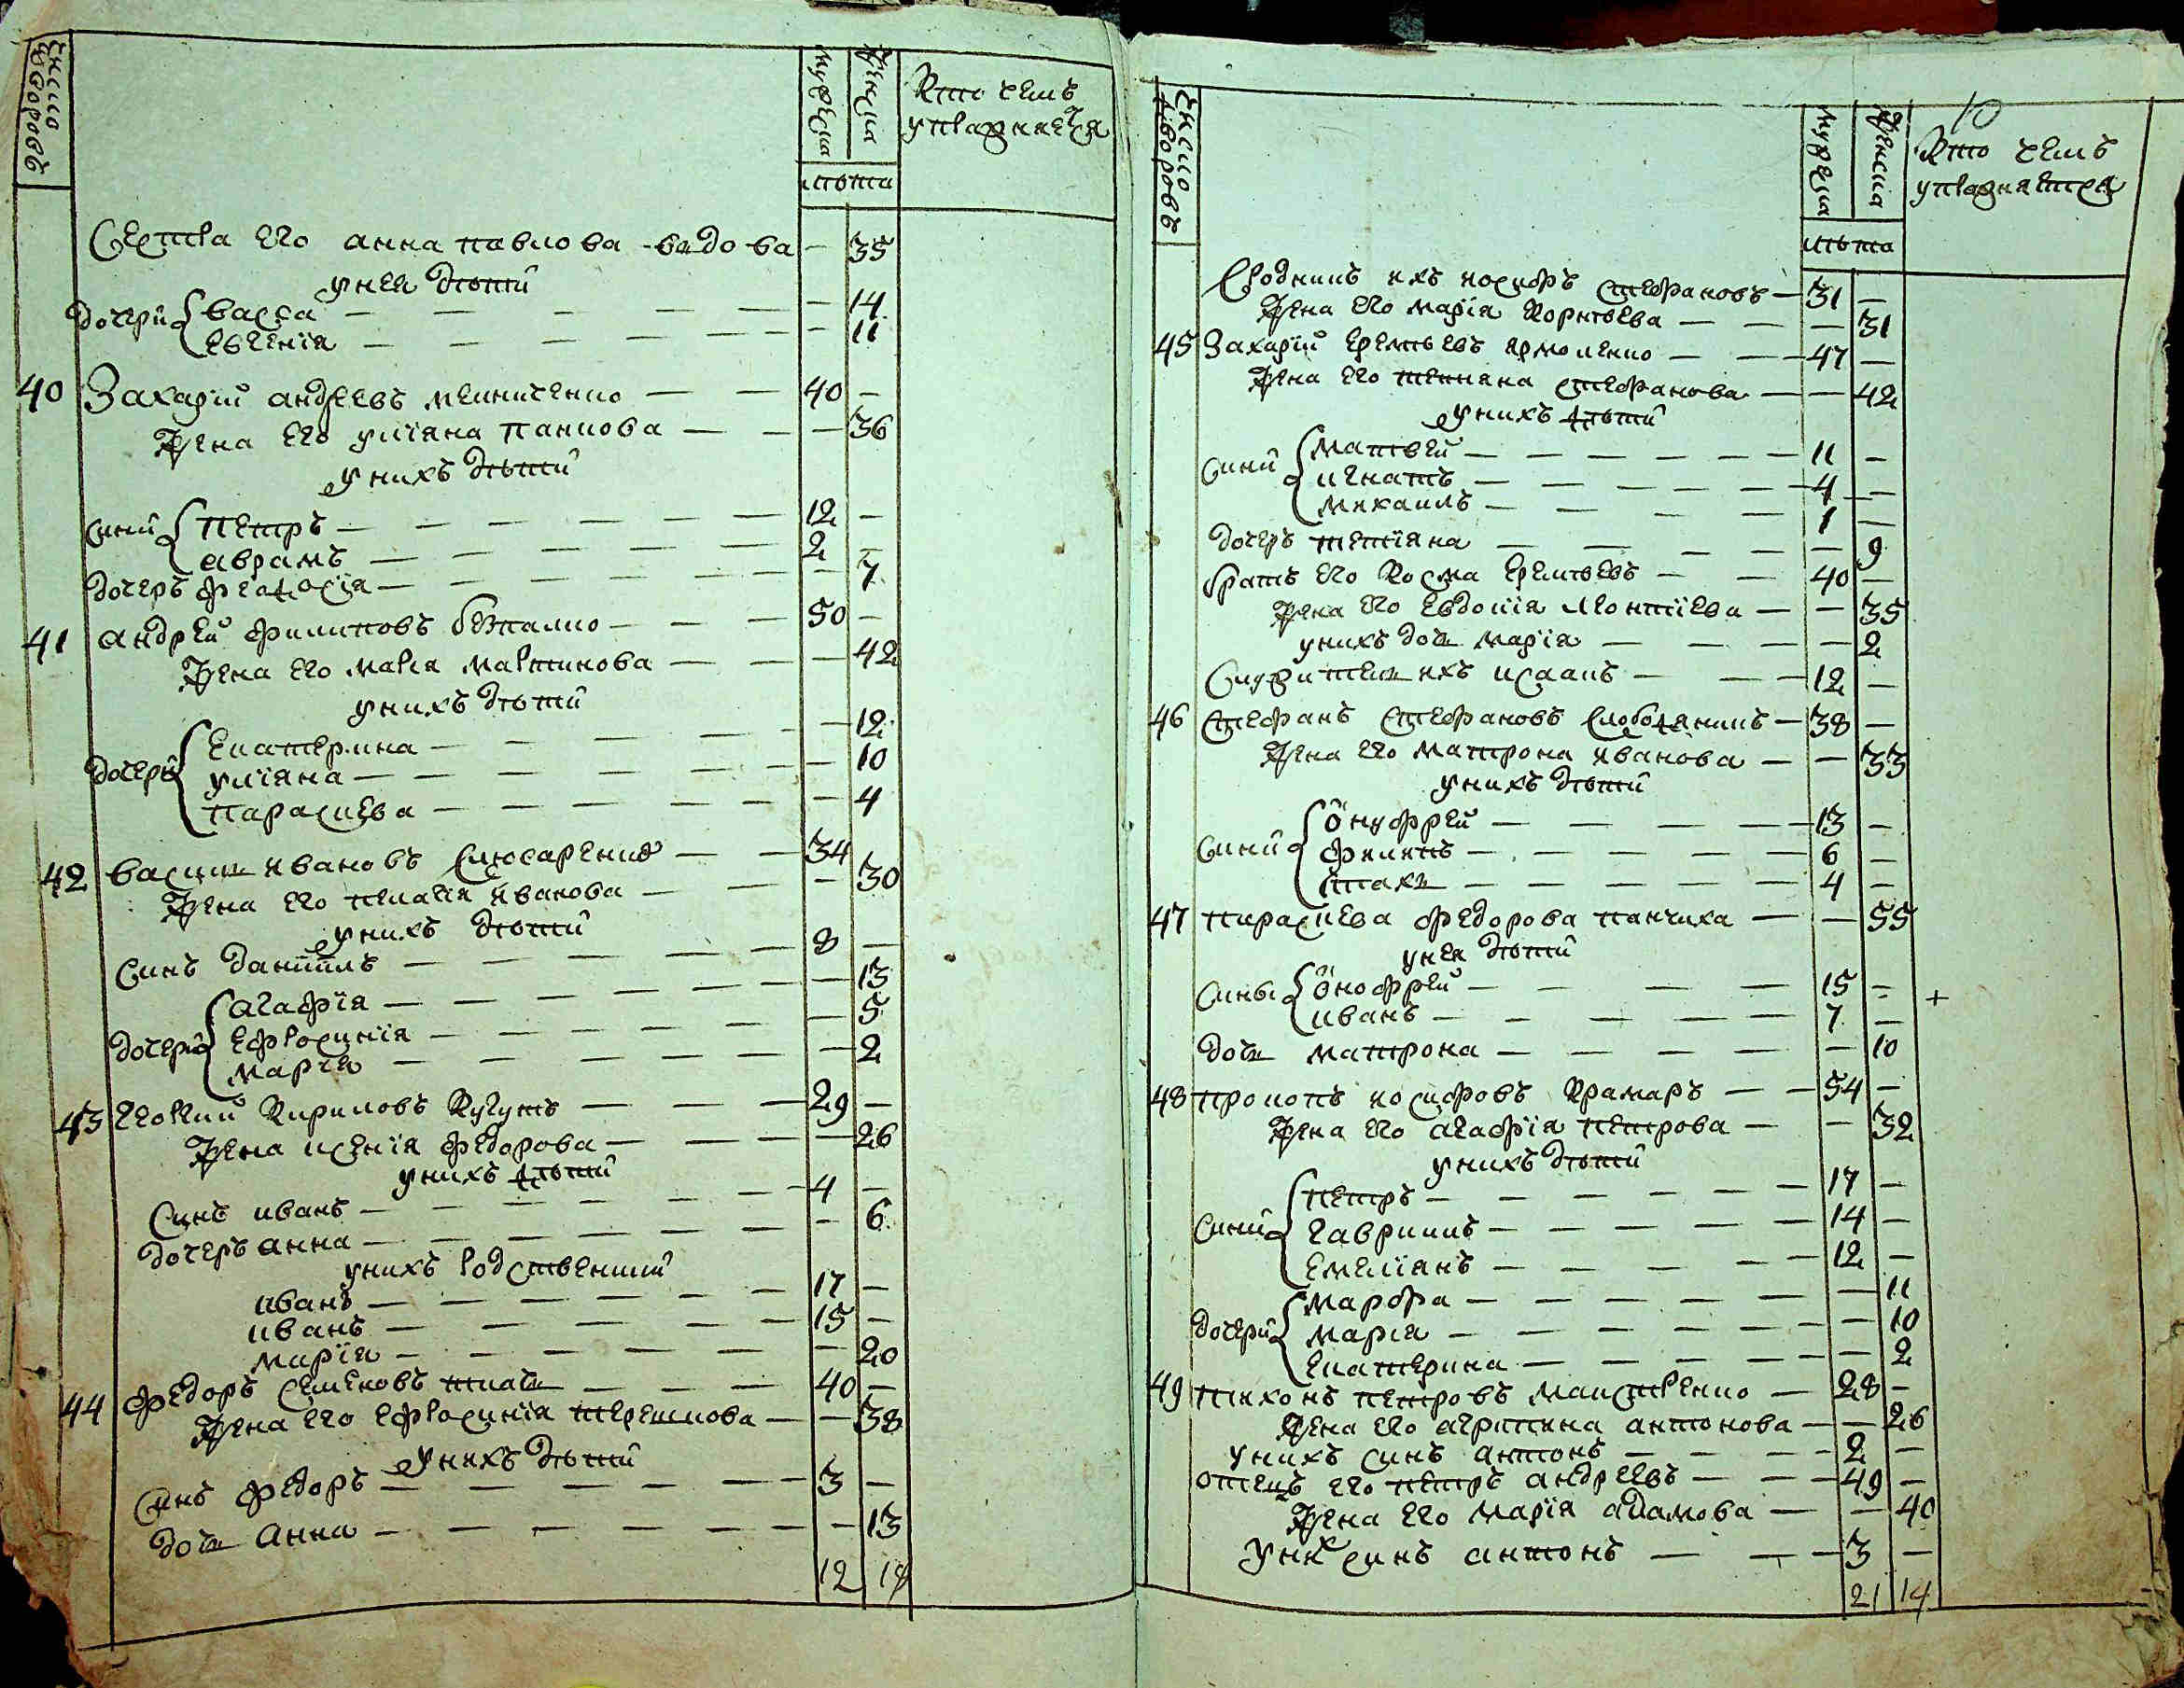 Число дворовъ
мужеска
женска
лѣта
Кто чемъ
упражняется
Сестра его анна павлова вдова — 35
унея дѣти
дочери васса — 14
евгенiя — 11
40 Захарiй андреевъ мелниченко — 40 —
Жена его улiяна панкова — 36
унихъ дѣти
сини петръ — 12 —
аврамъ — 2 —
дочеръ феодосiя — 7
41 андрей филиповъ безпалко — 50 —
Жена его марiя мартинова — 42
унихъ дѣти
дочери екатерина — 12
улiяна — 10
параскева — 4
42 василь ивановъ слюсаренко — 34
Жена его пелагiя иванова — 30
унихъ дѣти
синъ данiилъ — 8 —
дочери агафiя — 13
ефросинiя — 5
марiя — 2
43 георгий кириловъ кугутъ — 29 —
Жена ксенiя федорова — 26
унихъ дѣти
синъ иванъ — 4 —
дочеръ анна — 6
унихъ родственики
иванъ — 17 —
иванъ — 15 —
марiя — 20
44 федоръ семеновъ ткачь — 40 —
Жена его ефросинiя терешкова — 38
унихъ дѣти
синъ федоръ — 3 —
дочь анна — 13
12 19
10
Число дворовъ
мужеска
женска
лѣта
Кто чемъ
упражняется
Сродникъ ихъ иосифъ стефановъ — 31 —
Жена его марiя корнѣева — 31
45 Захарiй еремѣевъ ярмоленко — 47 —
Жена его татияна стефанова — 42
унихъ дѣти
сини матвей — 11 —
игнатъ — 4 —
михаилъ — 1 —
дочеръ татiяна — 9
братъ его косма еремѣевъ — 40 —
Жена его евдокiя леонтiева — 35
унихъ дочь марiя — 2
служитель ихъ исаакъ — 12 —
46 стефанъ стефановъ слободяникъ — 38 —
Жена его матрона иванова — 33
унихъ дѣти
сини онуфрей — 13 —
филипъ — 6 —
стахи — 4 —
47 параскева федорова панчиха — 55
унея дѣти
сины онофрей — 15 — +
иванъ — 7 —
дочь матрона — 10
48 прокопъ иосифовъ крамаръ — 54 —
Жена его агафiя петрова — 32
унихъ дѣти
сини петръ — 17 —
гаврiилъ — 14 —
емелiянъ — 12 —
дочери марфа — 11
марiя — 10
екатерина — 2
49 тихонъ петровъ майстренко — 28 —
Жена его агрипина антонова — 26
унихъ синъ антонъ — 2 —
отецъ его петръ андреевъ — 49 —
Жена его марiя адамова — 40
уних синъ антонъ — 3 —
21 14